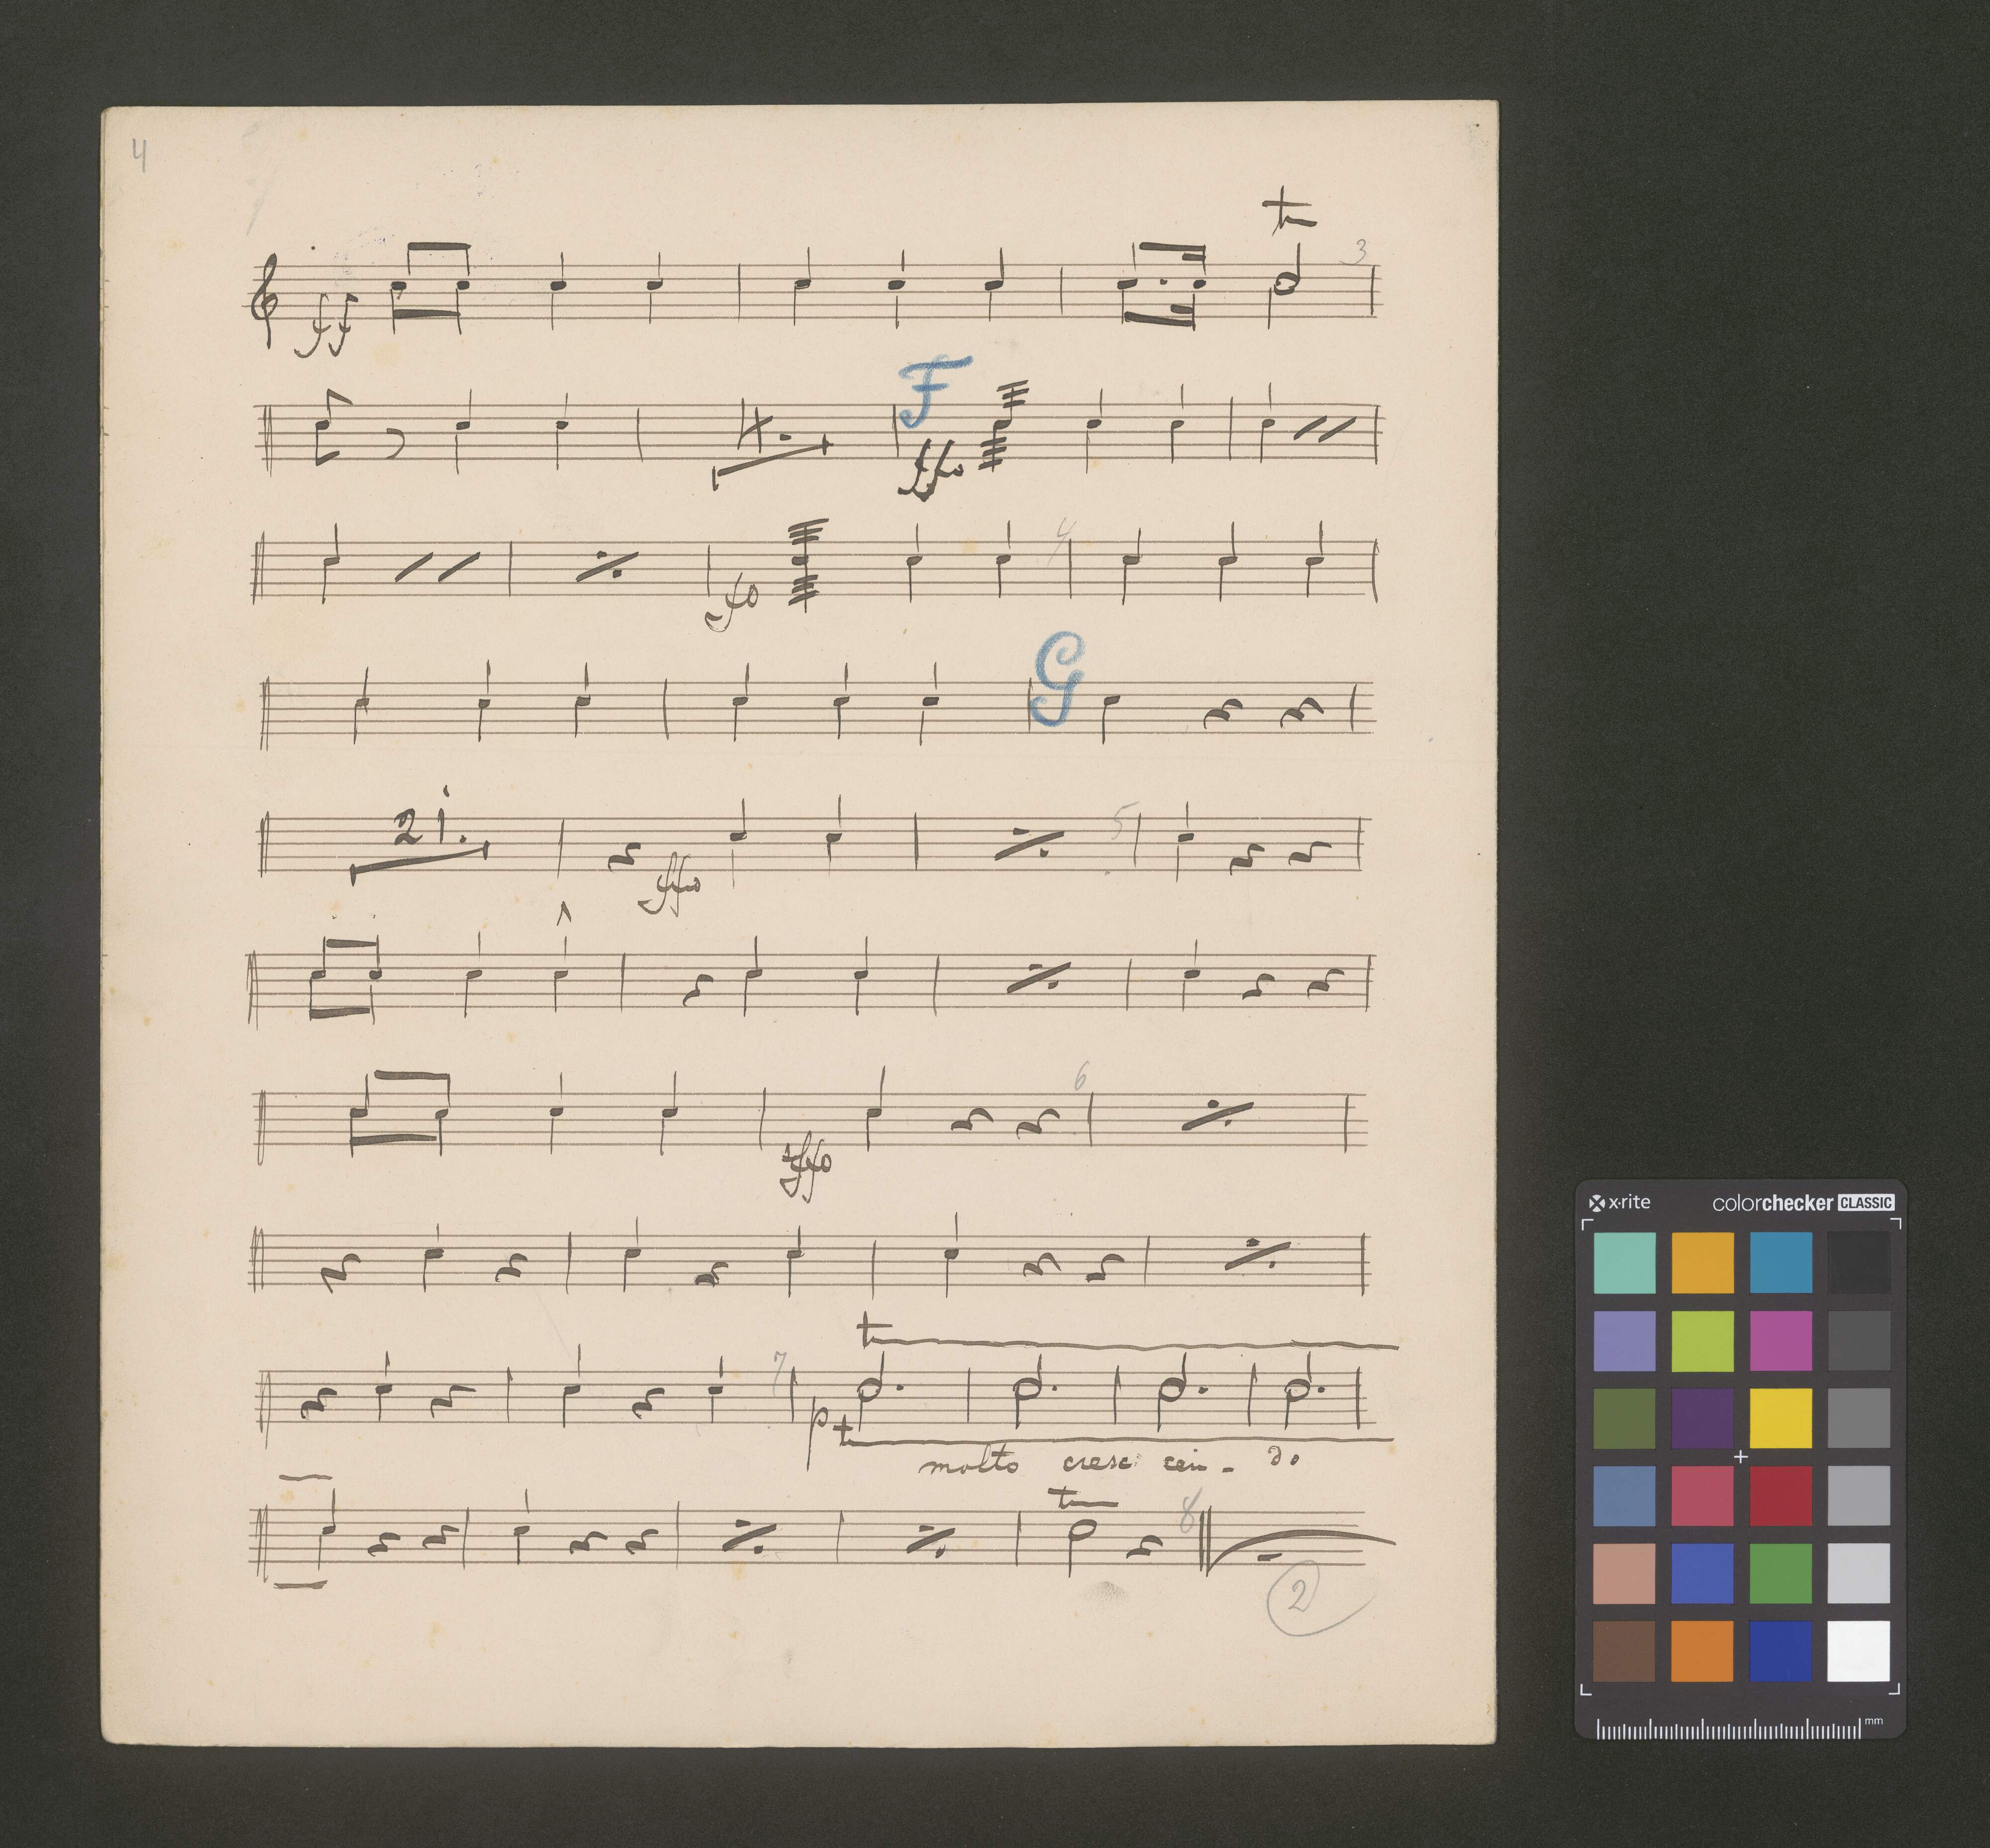 4
tr
3
ff
F
ffo
4
fo
G
21.
5
ffo
6
ffo
tr
7
p tr
molto cresc cen - do
tr
8
2
x·rite colorchecker CLASSIC
mm